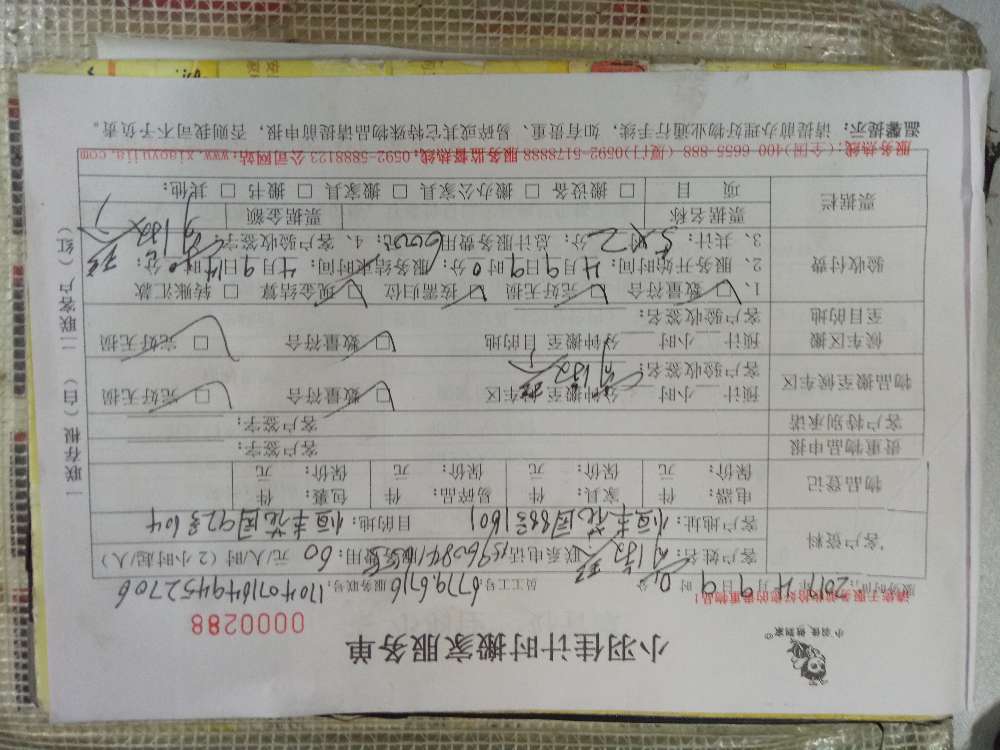 小羽佳 搬到家
小羽佳计时搬家服务单
0000288
请您于服务前收好您的贵重物品！
服务时间：2017年4月9日9时0分 员工工号：67796716 服务联号：
客户资料
客户姓名： 联系电话： 服务费用：60元/人/时（2小时/起/人）
客户地址：恒丰花园88号1601 目的地：恒丰花园92号604
物品登记
电器： 件 家具： 件 易碎品： 件 包裹： 件
保价： 元 保价： 元 保价： 元 保价： 元
贵重物品申报 客户签字：
客户特别承诺 客户签字：
物品搬至候车区
预计 小时 分钟搬至候车区 □ 数量符合 □ 完好无损
客户验收签名：
候车区搬至目的地
预计 小时 分钟搬至目的地 □ 数量符合 □ 完好无损
客户验收签名：
验收付费
1、□ 数量符合 □ 完好无损 □ 按需归位 □ 现金结算 □ 转账汇款
2、服务开始时间：4月9日9时0分；服务结束时间：4月9日14时0分；
3、共计：5×2 分；总计服务费用600元；4、客户验收签字：
票据栏
票据名称 票据金额
项 目 □ 搬设备 □ 搬办公家具 □ 搬家具 □ 搬书 □ 其他：
服务热线：（全国）400-6655-888（厦门）0592-5178888 服务监督热线：0592-5888123 公司网站：www.xiaoyujia.com
温馨提示：请提前办理好物业通行手续，如有贵重、易碎或其它特殊物品请提前申报，否则我司不予负责。
一联存根（白） 二联客户（红）